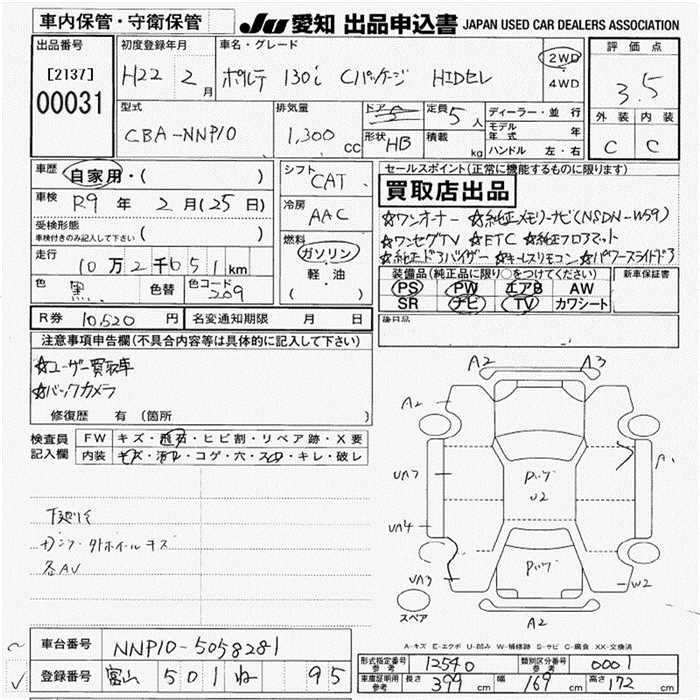 車内保管・守衛保管 JU愛知 出品申込書 JAPAN USED CAR DEALERS ASSOCIATION
出品番号 [2137] 00031
初度登録年月 H22 2月
車名・グレード ポルテ 130i Cパッケージ HIDセレ
2WD 4WD
評価点 3.5
外装 内装
C C
型式 CBA-NNP10
排気量 1,300 cc
ドア 5
形状 HB
定員 5人
積載 kg
ディーラー・並行
モデル年式 年
ハンドル 左・右
車歴 自家用・( )
車検 R9年 2月(25日)
受検形態 車検付きのみ記入して下さい ( )
走行 10万2千051km
色 黒 色替 色コード 209
シフト CAT
冷房 AAC
燃料 ガソリン 軽・油 ( )
セールスポイント(正常に機能するものに限ります)
買取店出品
☆ワンオーナー ☆純正メモリーナビ(NSDN-W59)
☆ワンセグTV ☆ETC ☆純正フロアマット
☆純正ドアバイザー ☆キーレスリモコン ☆パワースライドドア
装備品(純正品に限り○をつけてください) 新車保証書
PS PW エアB AW
SR ナビ TV カワシート
後日品
R券 10,520円 名変通知期限 月 日
注意事項申告欄(不具合内容等は具体的に記入して下さい)
☆ユーザー買取車
☆バックカメラ
修復歴 有 (箇所 )
検査員記入欄 FW キズ・飛石・ヒビ割・リペア跡・X要
内装 キズ・汚れ・コゲ・穴・スレ・キレ・破レ
下廻り
外ホイールキズ
各AU
A2 A3
A2
UA7
UA4
UA3
U2
W2
A2
スペア
A-キズ E-エクボ U-凹み W-補修跡 S-サビ C-腐食 XX-交換済
車台番号 NNP10-5058281
登録番号 富山 501 ね 95
形式指定番号 参考 12540 類別区分番号 参考 0001
車庫証明用 参考 長さ 399cm 幅 169cm 高さ 172cm